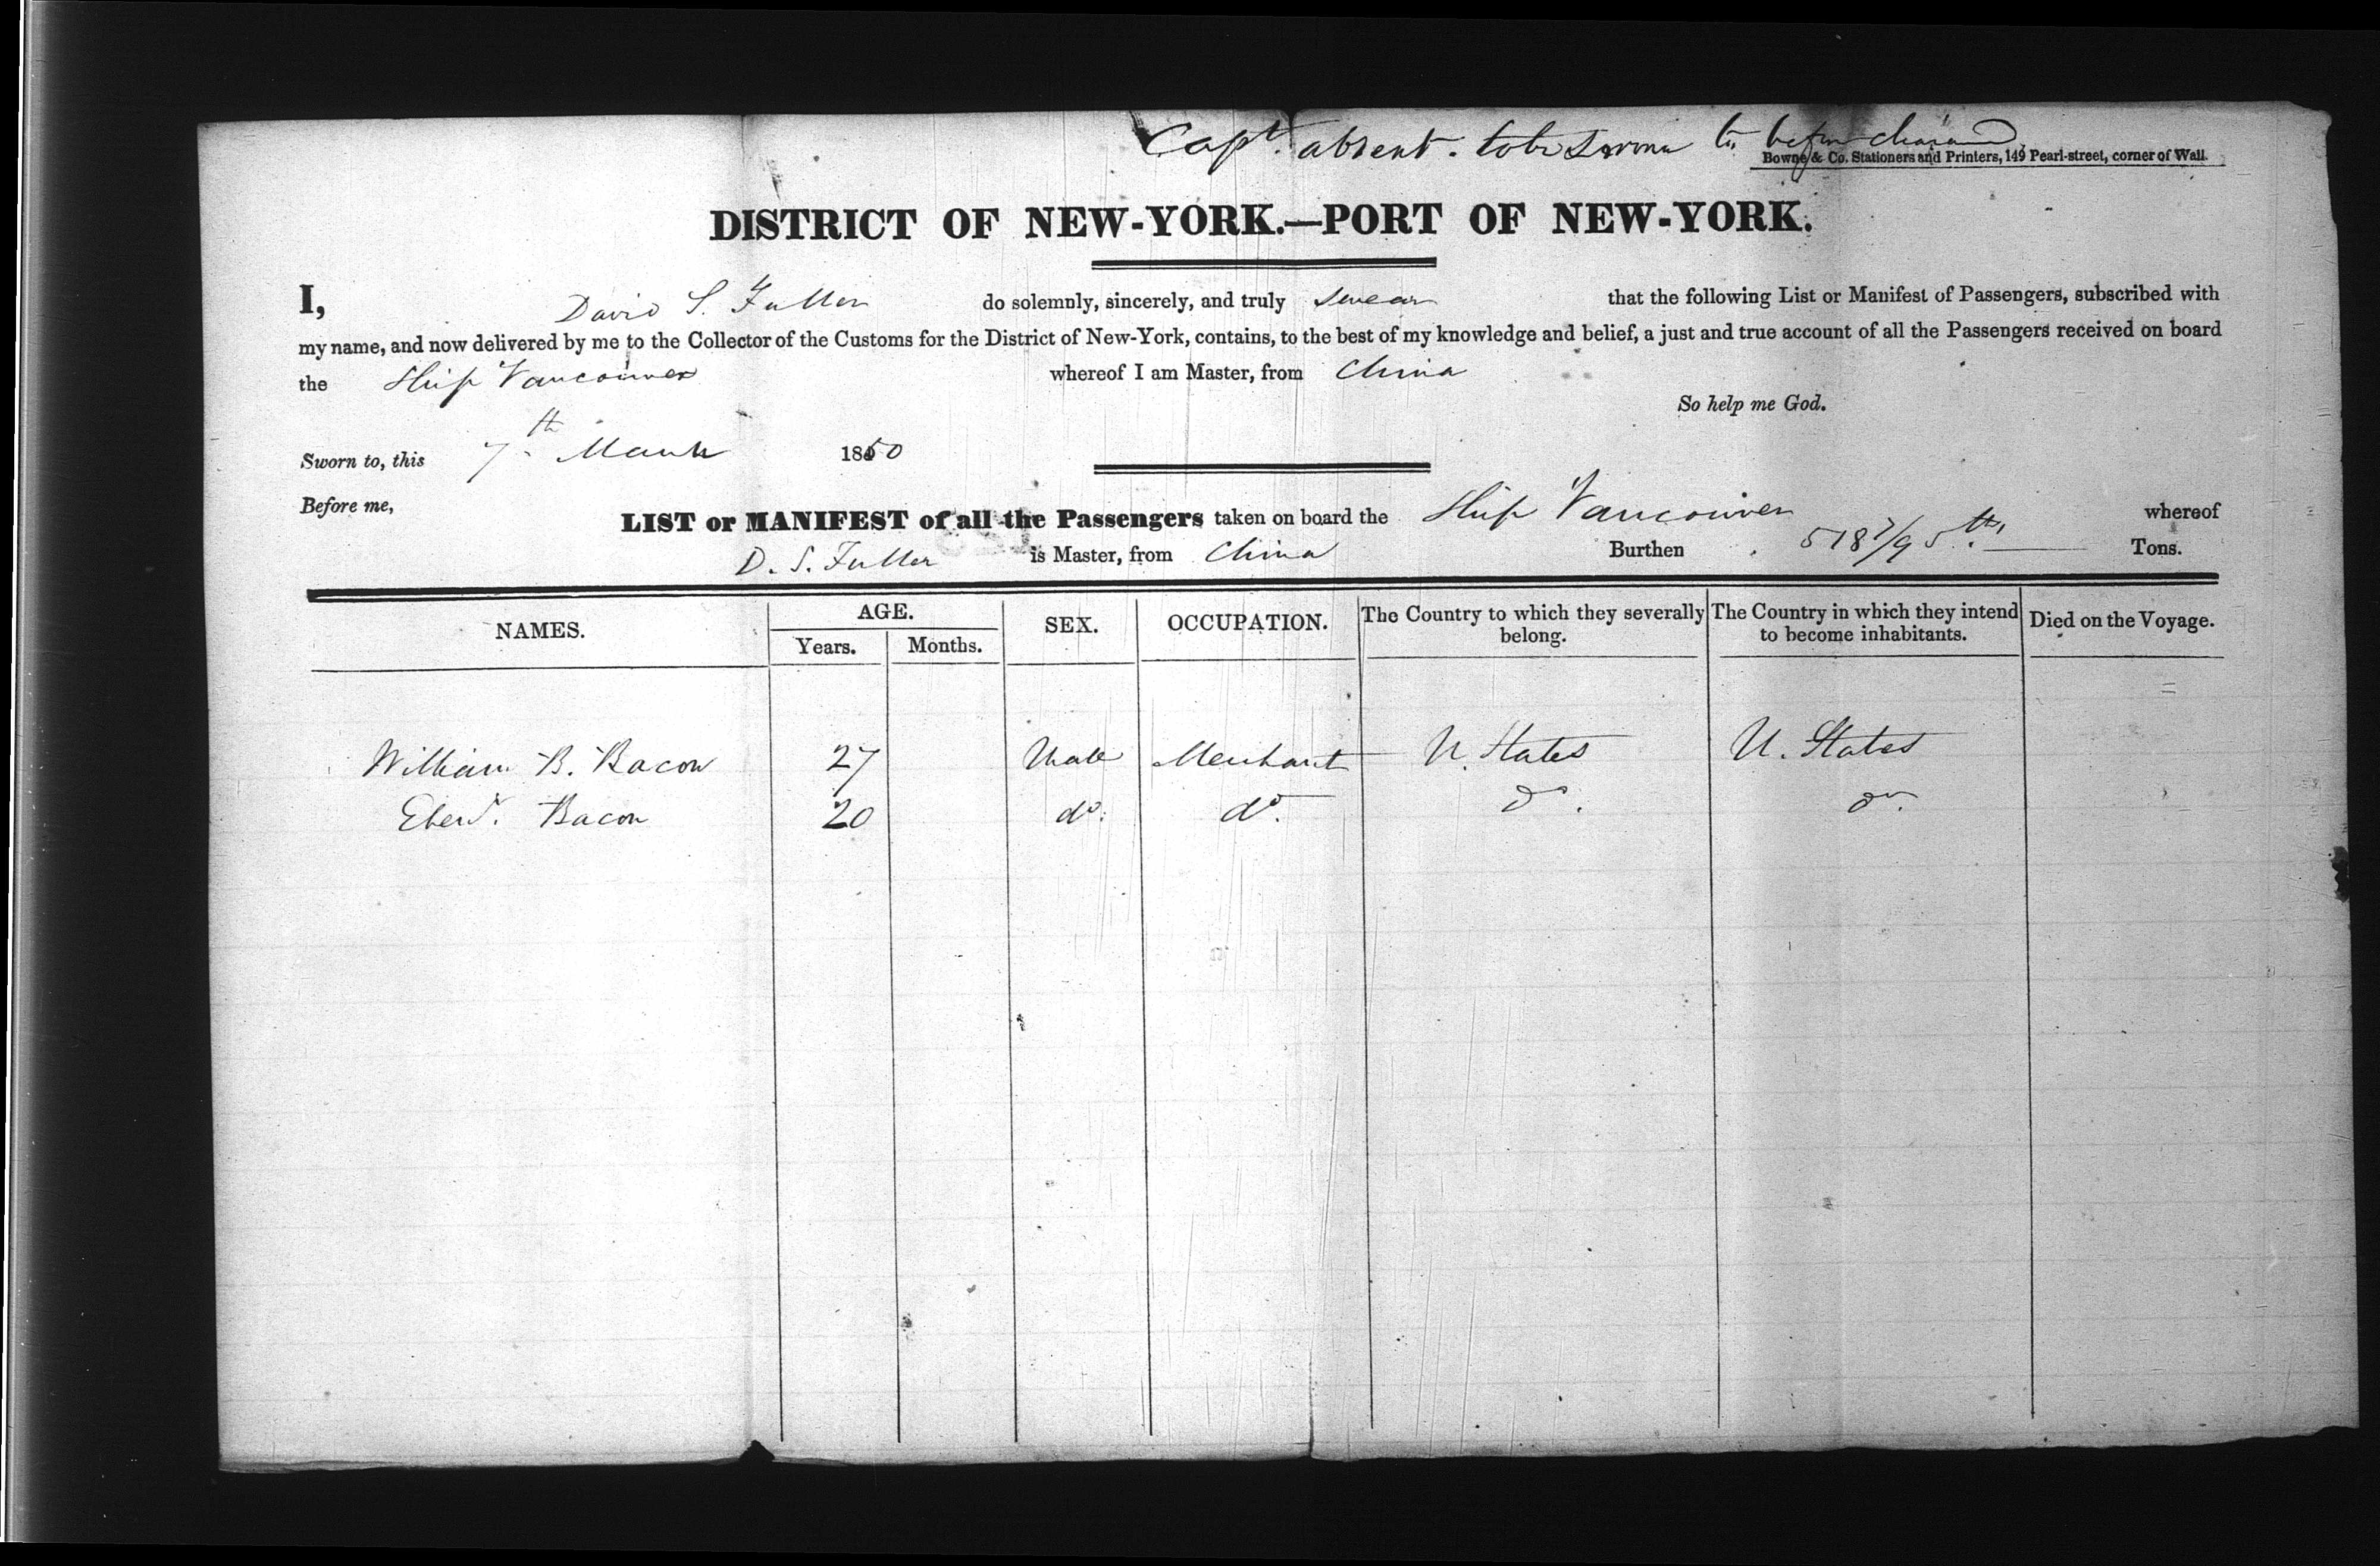 Capt. absent. to be sworn to before clearance
Bowne & Co. Stationers and Printers, 149 Pearl-street, corner of Wall.
DISTRICT OF NEW-YORK.—PORT OF NEW-YORK.
I, David S. Fuller do solemnly, sincerely, and truly swear that the following List or Manifest of Passengers, subscribed with
my name, and now delivered by me to the Collector of the Customs for the District of New-York, contains, to the best of my knowledge and belief, a just and true account of all the Passengers received on board
the Ship Vancouver whereof I am Master, from China
So help me God.
Sworn to, this 7th March 1850
Before me,
LIST or MANIFEST of all the Passengers taken on board the Ship Vancouver whereof
D. S. Fuller is Master, from China Burthen 518 7/95ths Tons.
NAMES. AGE. SEX. OCCUPATION. The Country to which they severally belong. The Country in which they intend to become inhabitants. Died on the Voyage.
Years. Months.
William B. Bacon 27 Male Merchant U. States U. States
Bacon 20 do. do. do. do.